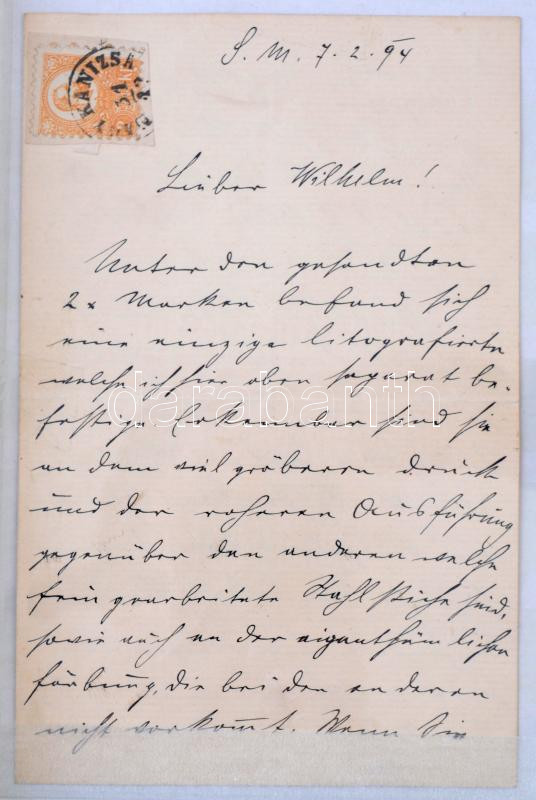 S. M. 7. 2. 94
KANIZSA
Lieber Wilhelm!
Unter den gesandten
2 x Marken befand sich
eine einzige litografierte
welche ich hier oben separat be-
festige Erkennbar sind sie
an dem viel gröberen druck
und der roheren Ausführung
gegenüber den anderen welche
fein gearbeitete Stahlstiche sind,
sowie auch an der eigenthümlichen
färbung, die bei den anderen
nicht vorkommt. Wenn Sie
darabanth